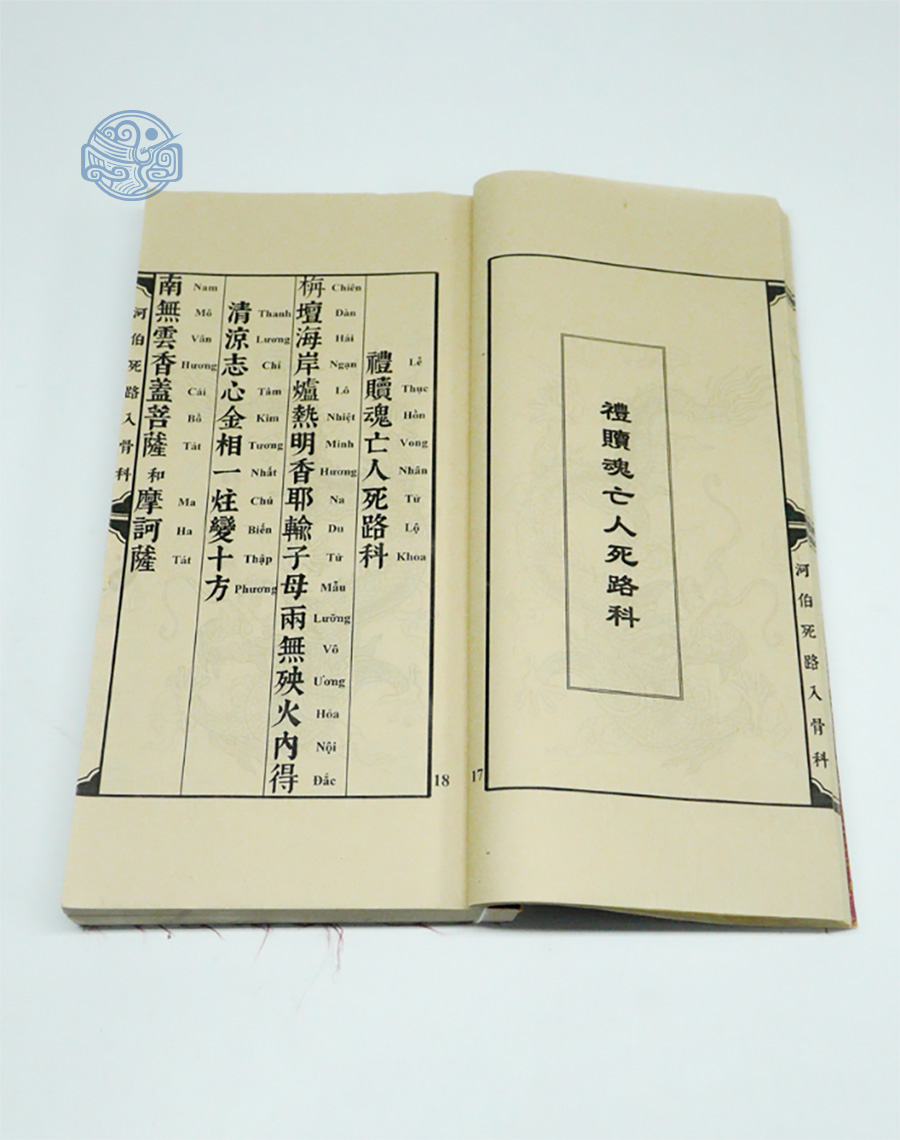 河伯死路入骨科
禮贖魂亡人死路科
17
禮贖魂亡人死路科
Lễ Thục Hồn Vong Nhân Tử Lộ Khoa
栴壇海岸爐熱明香耶輸子母兩無殃火內得
Chiên Dàn Hải Ngạn Lô Nhiệt Minh Hương Na Du Tử Mẫu Lưỡng Vô Ương Hỏa Nội Đắc
清涼志心金相一炷變十方
Thanh Lương Chí Tâm Kim Tương Nhất Chú Biến Thập Phương
南無雲香蓋菩薩和摩訶薩
Nam Mô Vân Hương Cái Bồ Tát Ma Ha Tát
河伯死路入骨科
18